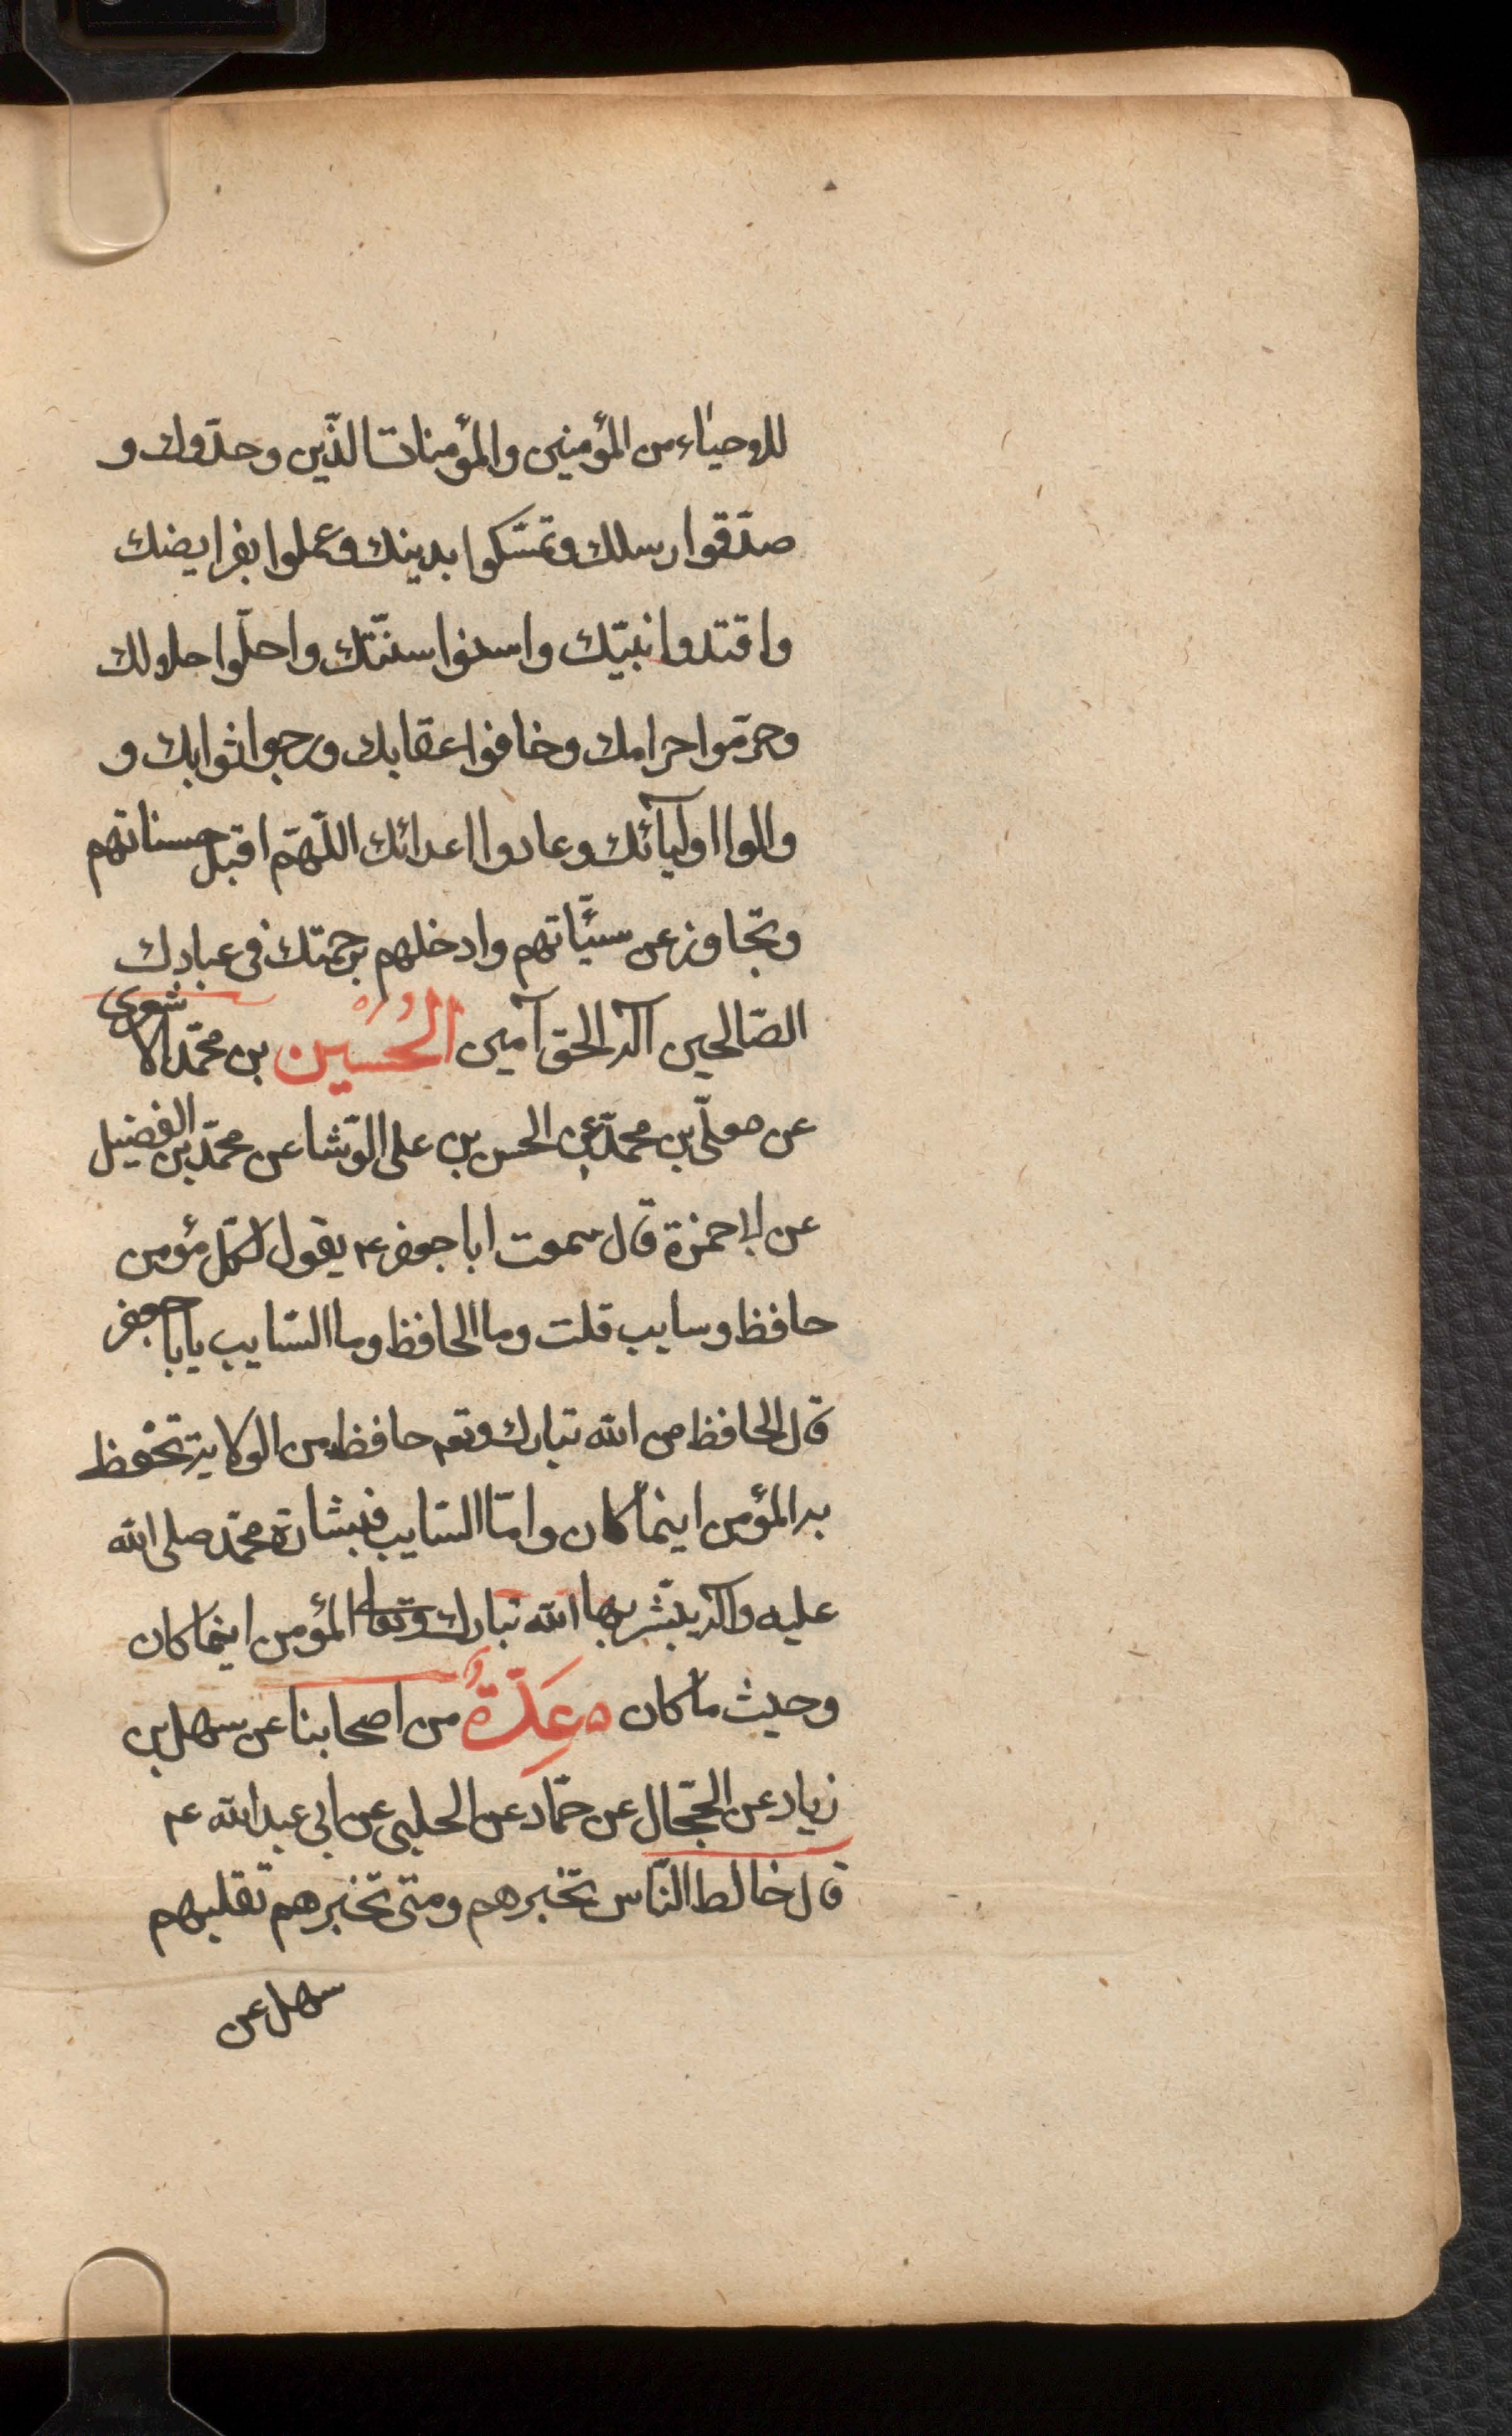 للاحياء من المؤمنين والمؤمنات الذّين وحدّوك و
صدّقوا رسلك وتمسّكوا بدينك وعملوا بفرايضك
واقتدوا نبيّك واسنوا سنّتك واحلّوا حلالك
وحرّموا حرامك وخافوا عقابك ورجوا ثوابك و
والوا اوليآئك وعادوا اعدائك اللّهمّ اقبل حسناتهم
وتجاوز عن سيّئاتهم وادخلهم برحمتك فى عبادك
الصّالحين آله الحق آمين الحُسَين بن محمّد الاشعرى
عن معلّى بن محمّد عن الحسن بن على الوّشا عن محمّد بن الفضيل
عن ابى حمزة قال سمعت ابا جعفر ع يقول لكلّ مؤمن
حافظ وسايب قلت وما الحافظ وما السّايب يابا جعفر
قال الحافظ من الله تبارك وتعه حافظ من الولاية تحْفظ
به المؤمن اينما كان وامّا السّايب فبشارة محمّد صلى الله
عليه وآله يبّشر بها الله تبارك وتعالى المؤمن اينما كان
وحيث ما كان ه عِدّةٌ من اصحابنا عن سهل بن
زياد عن الحجّال عن حمّاد عن الحلبى عن ابى عبد الله ع
قال خالط النّاس تخبرهم ومتى تخبرهم تقلهم
سهل عن